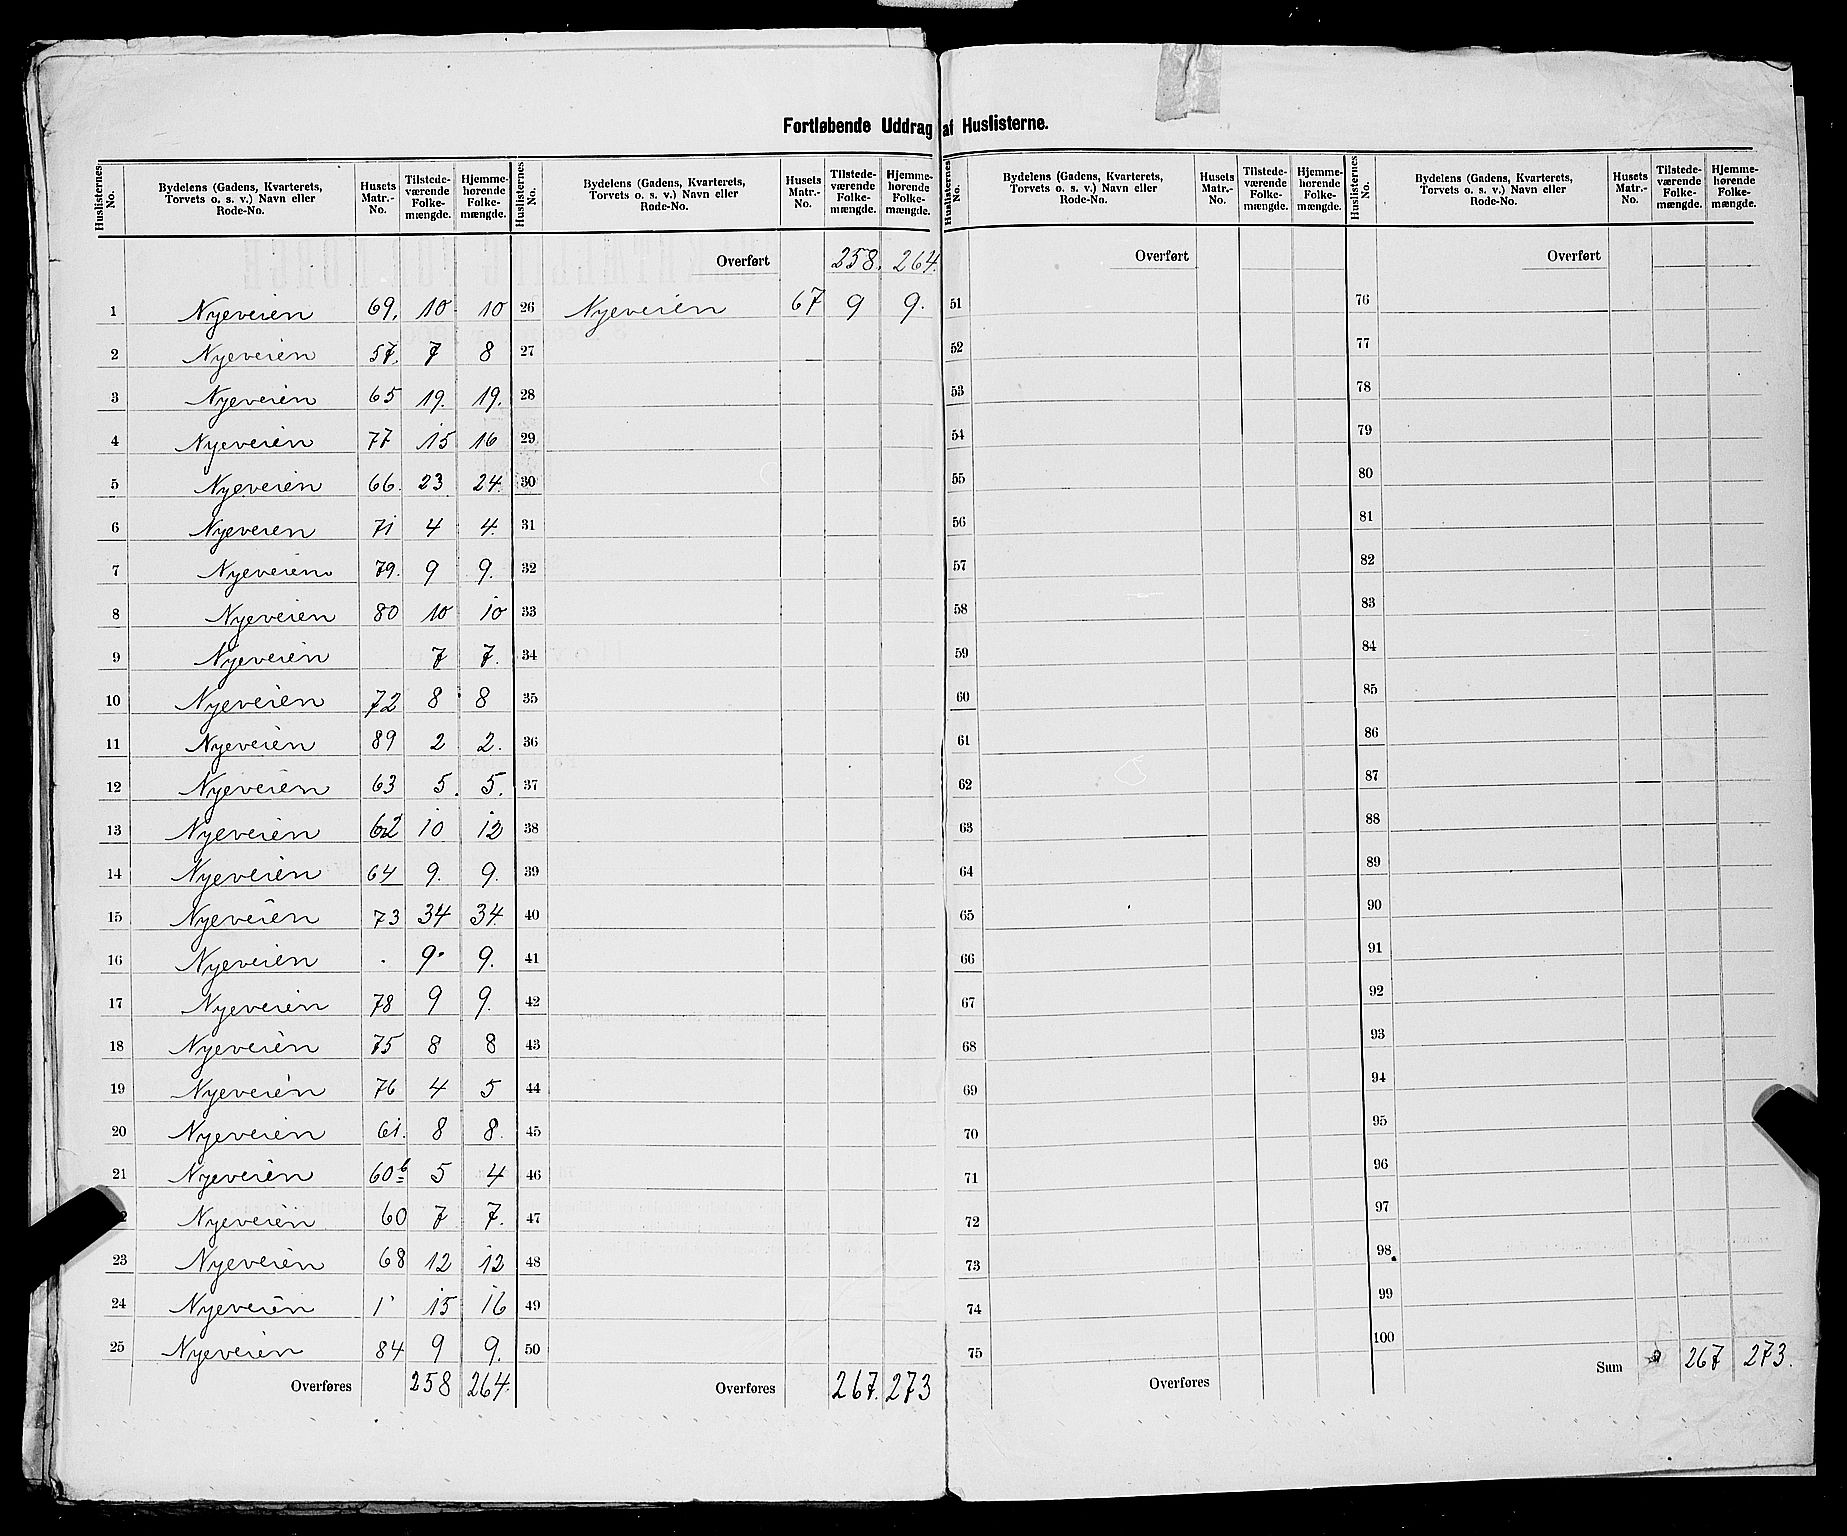 Fortløbende Uddrag af Huslisterne.
Huslisternes No. | Bydelens (Gadens, Kvarterets, Torvets o. s. v.) Navn eller Rode-No. | Husets Matr.-No. | Tilstedeværende Folkemængde. | Hjemmehørende Folkemængde.
1 Nyeveien 69. 10 10
2 Nyeveien 57. 7 8
3 Nyeveien 65 19. 19.
4 Nyeveien 77 15 16
5 Nyeveien 66. 23 24.
6 Nyeveien 71 4 4.
7 Nyeveien 79. 9 9.
8 Nyeveien 80 10 10
9 Nyeveien 7 7.
10 Nyeveien 72 8 8
11 Nyeveien 89 2 2.
12 Nyeveien 63 5. 5.
13 Nyeveien 62 10 12
14 Nyeveien 64 9. 9.
15 Nyeveien 73 34 34.
16 Nyeveien . 9. 9.
17 Nyeveien 78 9 9.
18 Nyeveien 75 8 8
19 Nyeveien 76 4 5
20 Nyeveien 61. 8 8.
21 Nyeveien 60b 5 4
Nyeveien 60 7 7.
23 Nyeveien 68 12 12
24 Nyeveien 1 15 16
25 Nyeveien 84 9 9.
Overføres 258 264.
Huslisternes No. | Bydelens (Gadens, Kvarterets, Torvets o. s. v.) Navn eller Rode-No. | Husets Matr.-No. | Tilstedeværende Folkemængde. | Hjemmehørende Folkemængde.
Overført 258. 264.
26 Nyeveien 67 9 9.
27
28
29
30
31
32
33
34
35
36
37
38
39
40
41
42
43
44
45
46
47
48
49
50
Overføres 267. 273
Huslisternes No. | Bydelens (Gadens, Kvarterets, Torvets o. s. v.) Navn eller Rode-No. | Husets Matr.-No. | Tilstedeværende Folkemængde. | Hjemmehørende Folkemængde.
Overført
51
52
53
54
55
56
57
58
59
60
61
62
63
64
65
66
67
68
69
70
71
72
73
74
75
Overføres
Huslisternes No. | Bydelens (Gadens, Kvarterets, Torvets o. s. v.) Navn eller Rode-No. | Husets Matr.-No. | Tilstedeværende Folkemængde. | Hjemmehørende Folkemængde.
Overført
76
77
78
79
80
81
82
83
84
85
86
87
88
89
90
91
92
93
94
95
96
97
98
99
100
Sum 267 273.